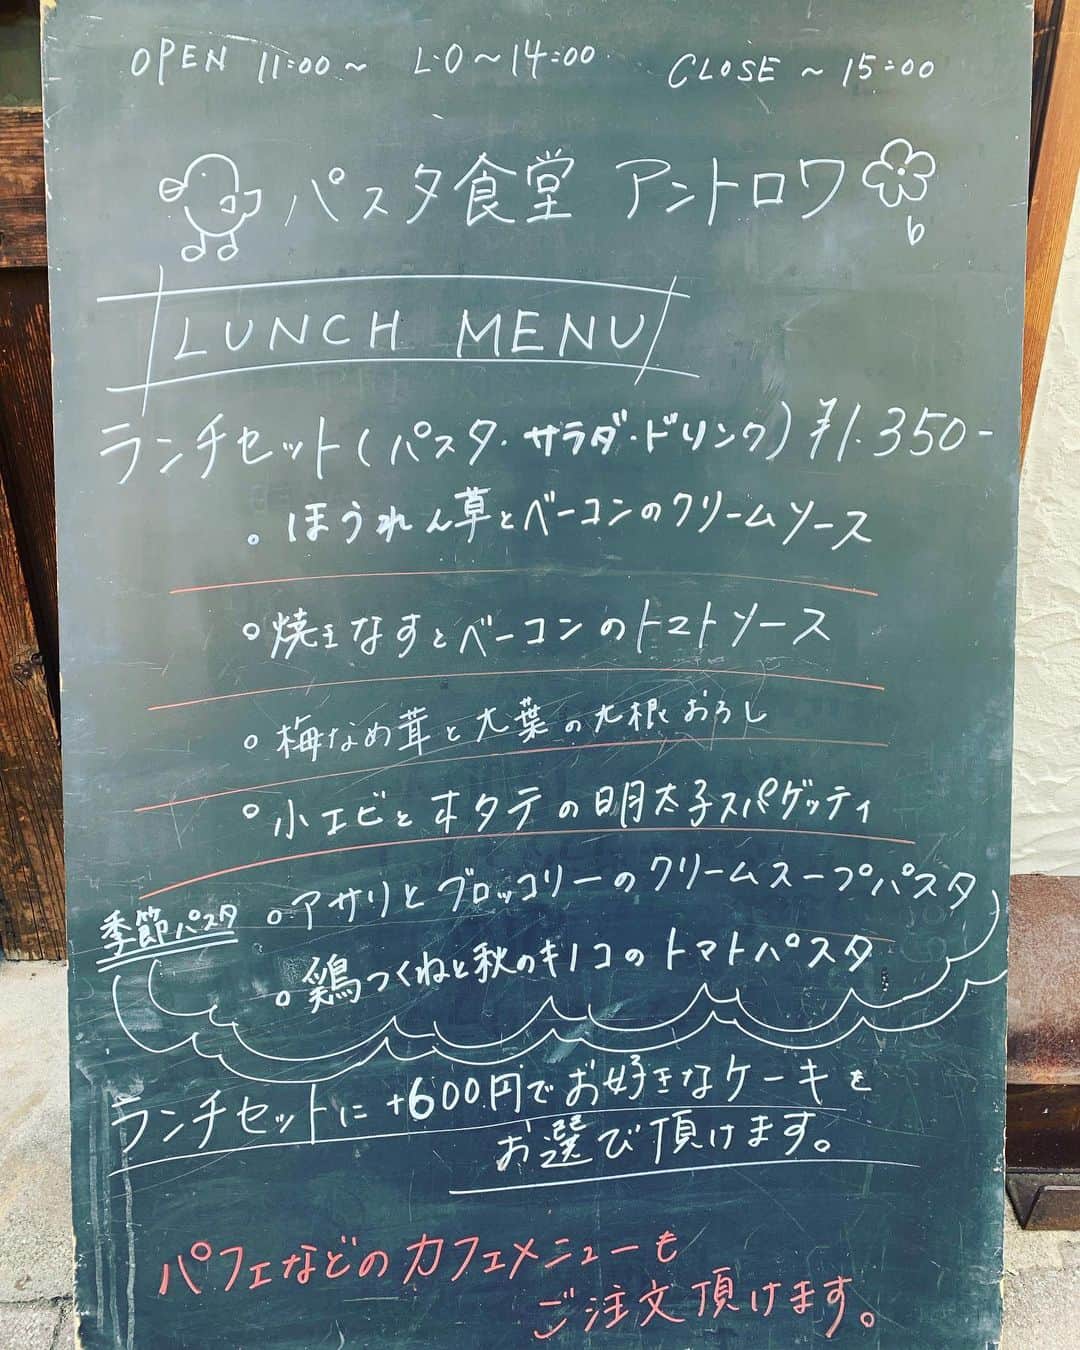 OPEN 11:00～ L.O～14:00. CLOSE ～15:00
パスタ食堂 アントロワ
LUNCH MENU
ランチセット(パスタ・サラダ・ドリンク)¥1.350-
。ほうれん草とベーコンのクリームソース
。焼きなすとベーコンのトマトソース
。梅なめ茸と大葉の大根おろし
。小エビとホタテの明太子スパゲッティ
季節パスタ
。アサリとブロッコリーのクリームスープパスタ
。鶏つくねと秋のキノコのトマトパスタ
ランチセットに+600円でお好きなケーキを
お選び頂けます。
パフェなどのカフェメニューも
ご注文頂けます。